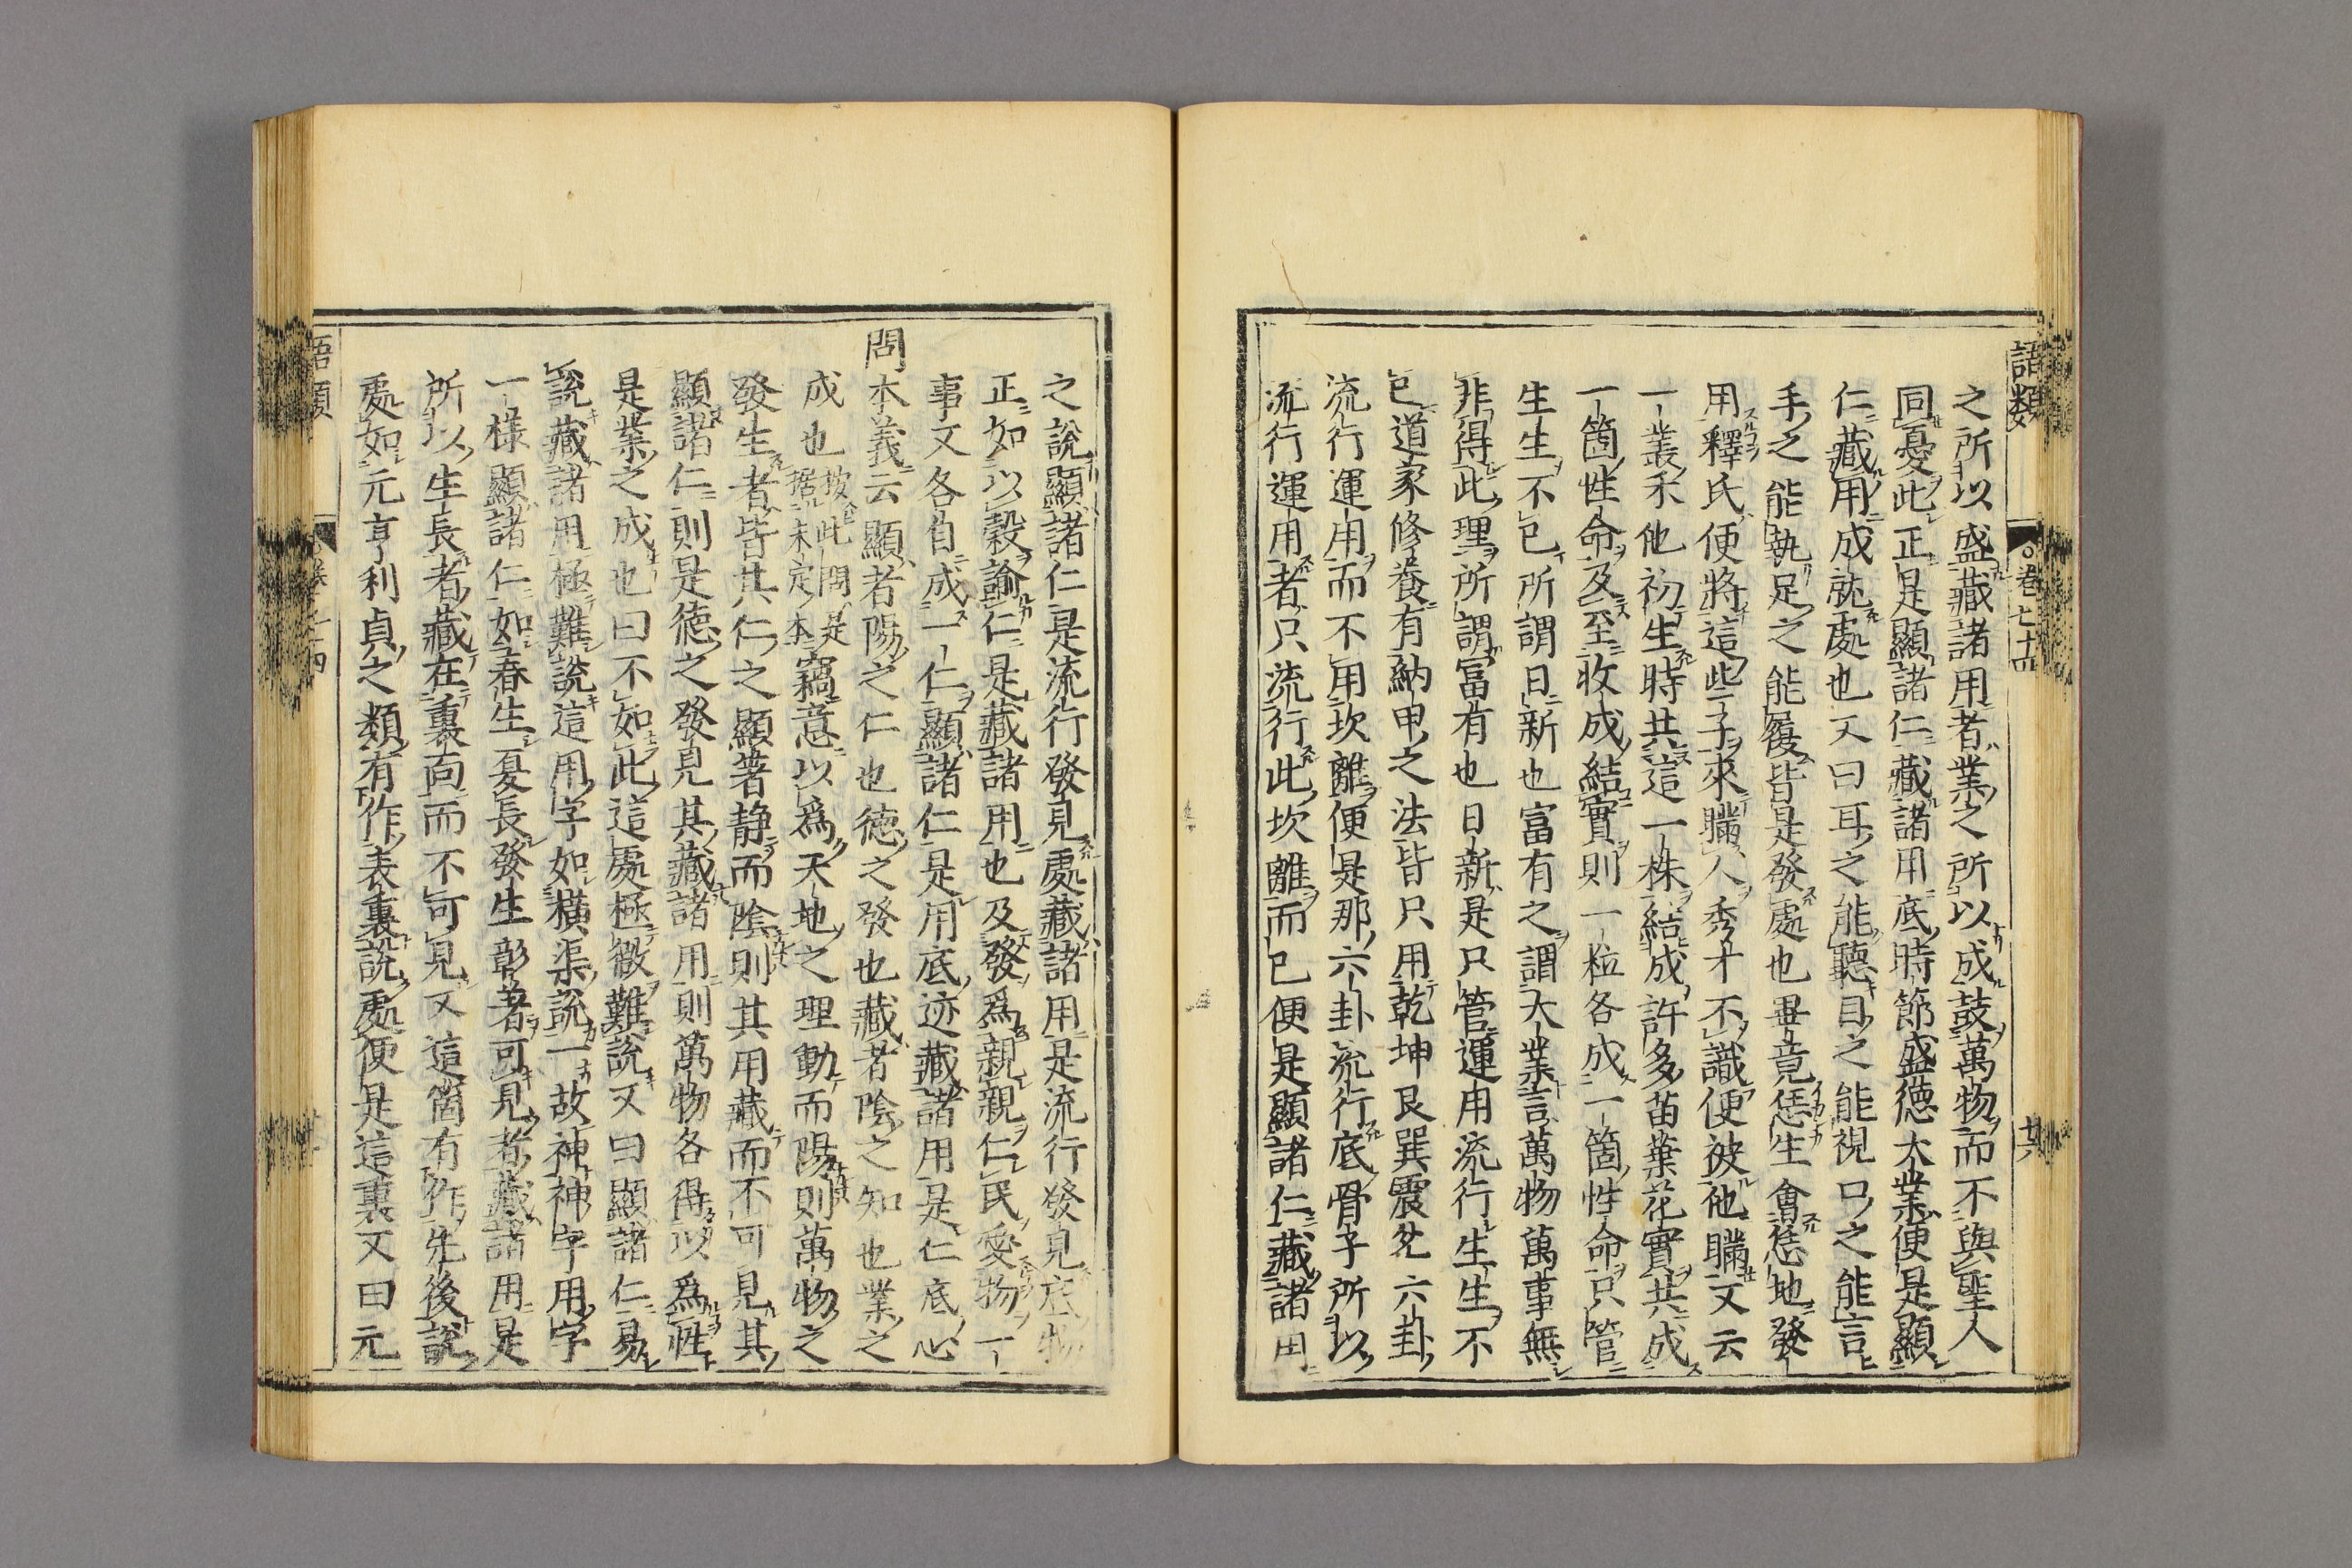 語類
卷七十四
廿六
之所以盛藏諸用者業之所以成鼓萬物而不與聖人
同憂此正是顯諸仁藏諸用底時節盛德大業便是顯
仁藏用成就處也又曰耳之能聽目之能視口之能言
手之能執足之能履皆是發處也畢竟恁生會恁地發
用釋氏便將這些子來瞞人秀才不識便被他瞞又云
一叢禾他初生時共這一株結成許多苗葉花實共成
一箇性命及至收成結實則一粒各成一箇性命只管
生生不已所謂日新也富有之謂大業言萬物萬事無
非得此理所謂富有也日新是只管運用流行生生不
已道家修養有納甲之法皆只用乾坤艮巽震兌六卦
流行運用而不用坎離便是那六卦流行底骨子所以
流行運用者只流行此坎離而已便是顯諸仁藏諸用
之說顯諸仁是流行發見處藏諸用是流行發見底物
正如以穀諭仁是藏諸用也及發爲親親仁民愛物一
事又各自成一仁顯諸仁是用底迹藏諸用是仁底心
問本義云顯者陽之仁也德之發也藏者陰之知也業之
成也按此問是据未定本竊意以爲天地之理動而陽則萬物之
發生者皆其仁之顯著靜而陰則其用藏而不可見其
顯諸仁則是德之發見其藏諸用則萬物各得以爲性
是業之成也曰不如此這處極微難說又曰顯諸仁易
說藏諸用極難說這用字如橫渠說一故神神字用字
一樣顯諸仁如春生夏長發生彰著可見者藏諸用是
所以生長者藏在裏面而不可見又這箇有作先後說
處如元亨利貞之類有作表裏說處便是這裏又曰元
語類